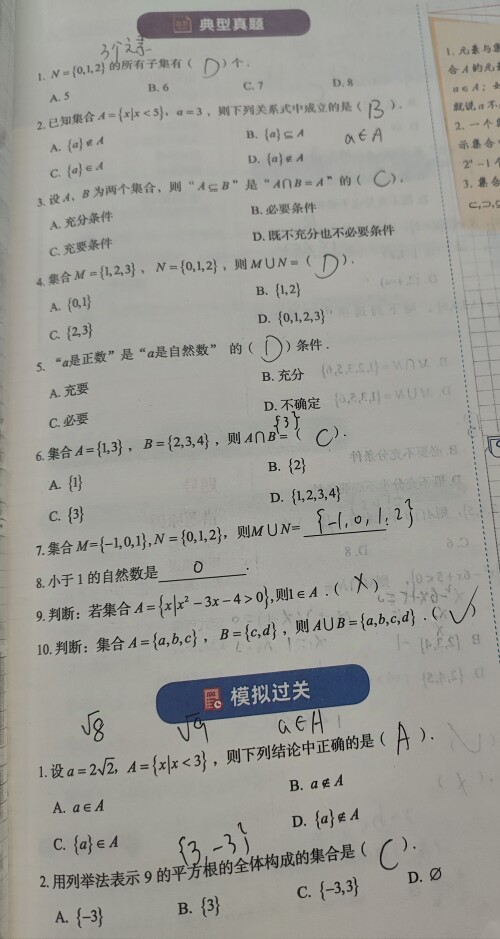 典型真题
3个元素
1. N={0,1,2}的所有子集有( D )个.
A. 5 B. 6 C. 7 D. 8
2. 已知集合A={x|x<5}, a=3, 则下列关系式中成立的是( B ).
A. {a}∉A B. {a}⊆A a∈A
C. {a}∈A D. {a}∉A
3. 设A, B为两个集合, 则“A⊆B”是“A∩B=A”的( C ).
A. 充分条件 B. 必要条件
C. 充要条件 D. 既不充分也不必要条件
4. 集合M={1,2,3}, N={0,1,2}, 则M∪N=( D ).
A. {0,1} B. {1,2}
C. {2,3} D. {0,1,2,3}
5. “a是正数”是“a是自然数”的( D )条件.
A. 充要 B. 充分
C. 必要 D. 不确定
{3}
6. 集合A={1,3}, B={2,3,4}, 则A∩B=( C ).
A. {1} B. {2}
C. {3} D. {1,2,3,4}
7. 集合M={-1,0,1}, N={0,1,2}, 则M∪N= {-1,0,1,2}
8. 小于1的自然数是 0 .
9. 判断: 若集合A={x|x²-3x-4>0}, 则1∈A. ( X )
10. 判断: 集合A={a,b,c}, B={c,d}, 则A∪B={a,b,c,d}. ( √ )
模拟过关
√8 √9 a∈A
1. 设a=2√2, A={x|x<3}, 则下列结论中正确的是( A ).
A. a∈A B. a∉A
C. {a}∈A D. {a}∉A
{3,-3}
2. 用列举法表示9的平方根的全体构成的集合是( C ).
A. {-3} B. {3} C. {-3,3} D. ∅
1. 元素与集
合A的元
a∈A; 如
就说a不
2. 一个
示集合
3. 集合